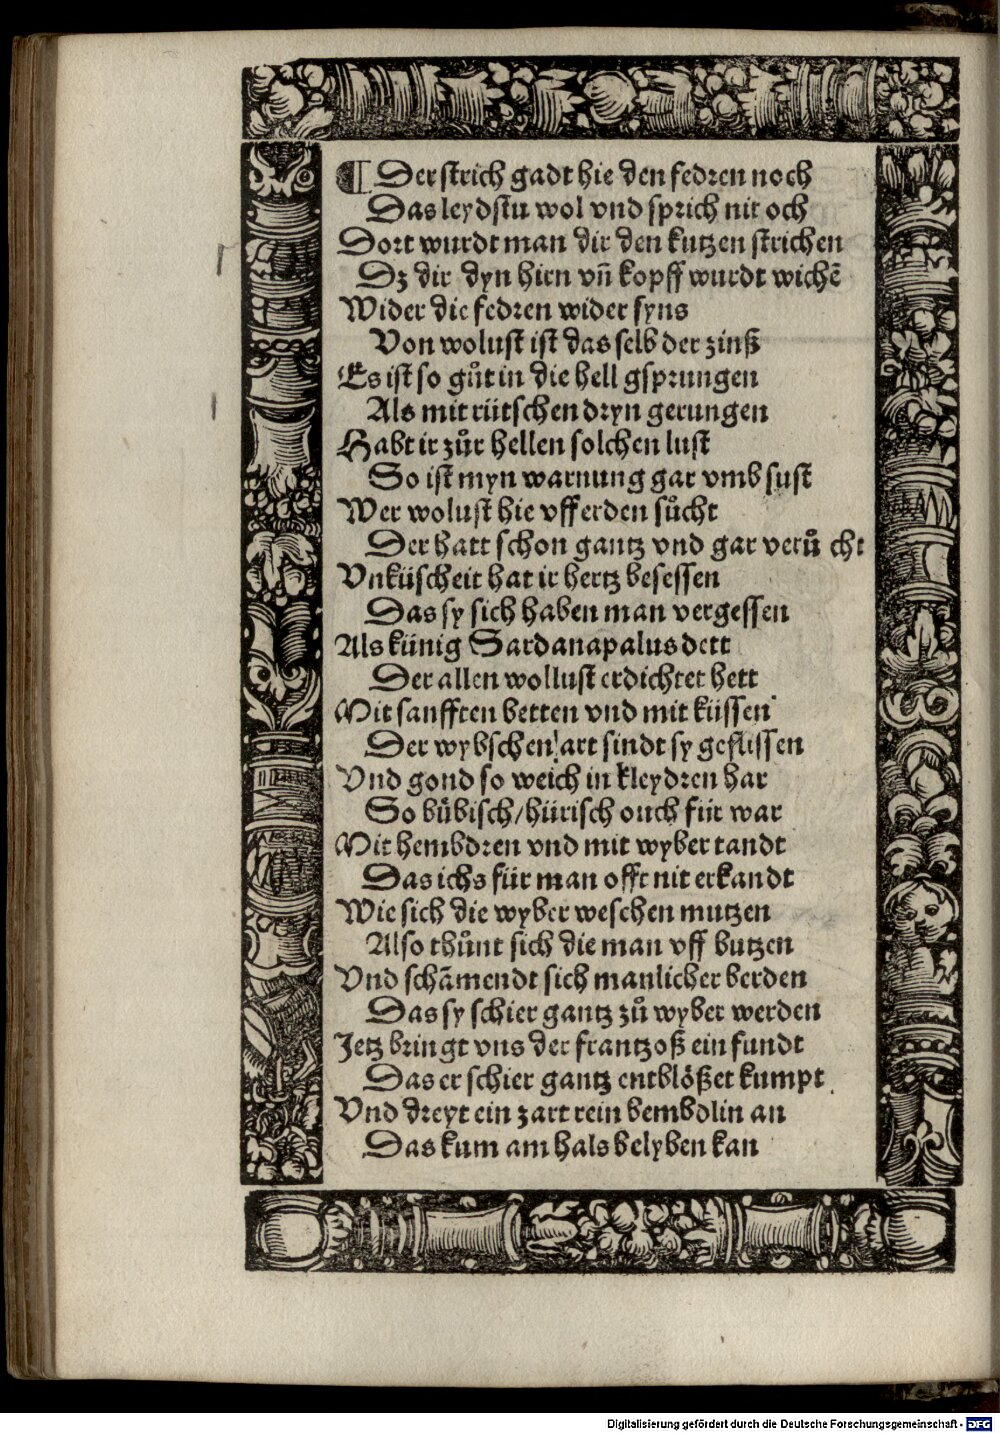 ¶ Der strich gadt hie den fedren noch
Das leydstu wol vnd sprich nit och
Dort wurdt man dir den kutzen strichen
Dz dir dyn hirn vn̄ kopff wurdt wichē
Wider die fedren wider syns
Von wolust ist das selb der zinß
Es ist so gůt in die hell gsprungen
Als mit rütschen dryn gerungen
Habt ir zůr hellen solchen lust
So ist myn warnung gar vmb sust
Wer wolust hie vff erden sůcht
Der hatt schon gantz vnd gar verů cht
Vnküscheit hat ir hertz besessen
Das sy sich haben man vergessen
Als künig Sardanapalus dett
Der allen wollust erdichtet hett
Mit sanfften betten vnd mit küssen
Der wybschen art sindt sy geflissen
Vnd gond so weich in kleydren har
So bůbisch/hürisch ouch für war
Mit hembdren vnd mit wyber tandt
Das ichs für man offt nit erkandt
Wie sich die wyber weschen mutzen
Also thůnt sich die man vff butzen
Vnd schāmendt sich manlicher berden
Das sy schier gantz zů wyber werden
Jetz bringt vns der frantzoß ein fundt
Das er schier gantz entblößet kumpt
Vnd dreyt ein zart rein bembdlin an
Das kum am hals belyben kan
Digitalisierung gefördert durch die Deutsche Forschungsgemeinschaft - DFG